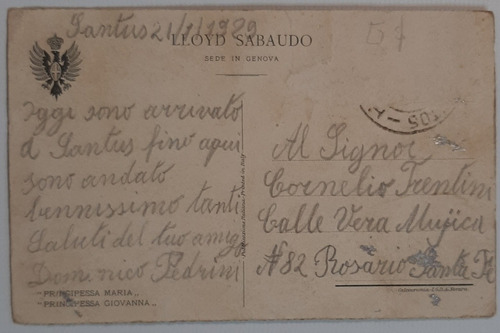 Santus 21/1/1929
LLOYD SABAUDO
SEDE IN GENOVA
57
oggi sono arrivato
a Santus fino aqui
sono andato
bannissimo tanti
Saluti del tuo amig
Domenico Pedrini
"PRINCIPESSA MARIA"
"PRINCIPESSA GIOVANNA"
Printed in Italy
Al Signor
Cornelio Trentini
Calle Vera Mujica
N 82 Rosario Santa Fe